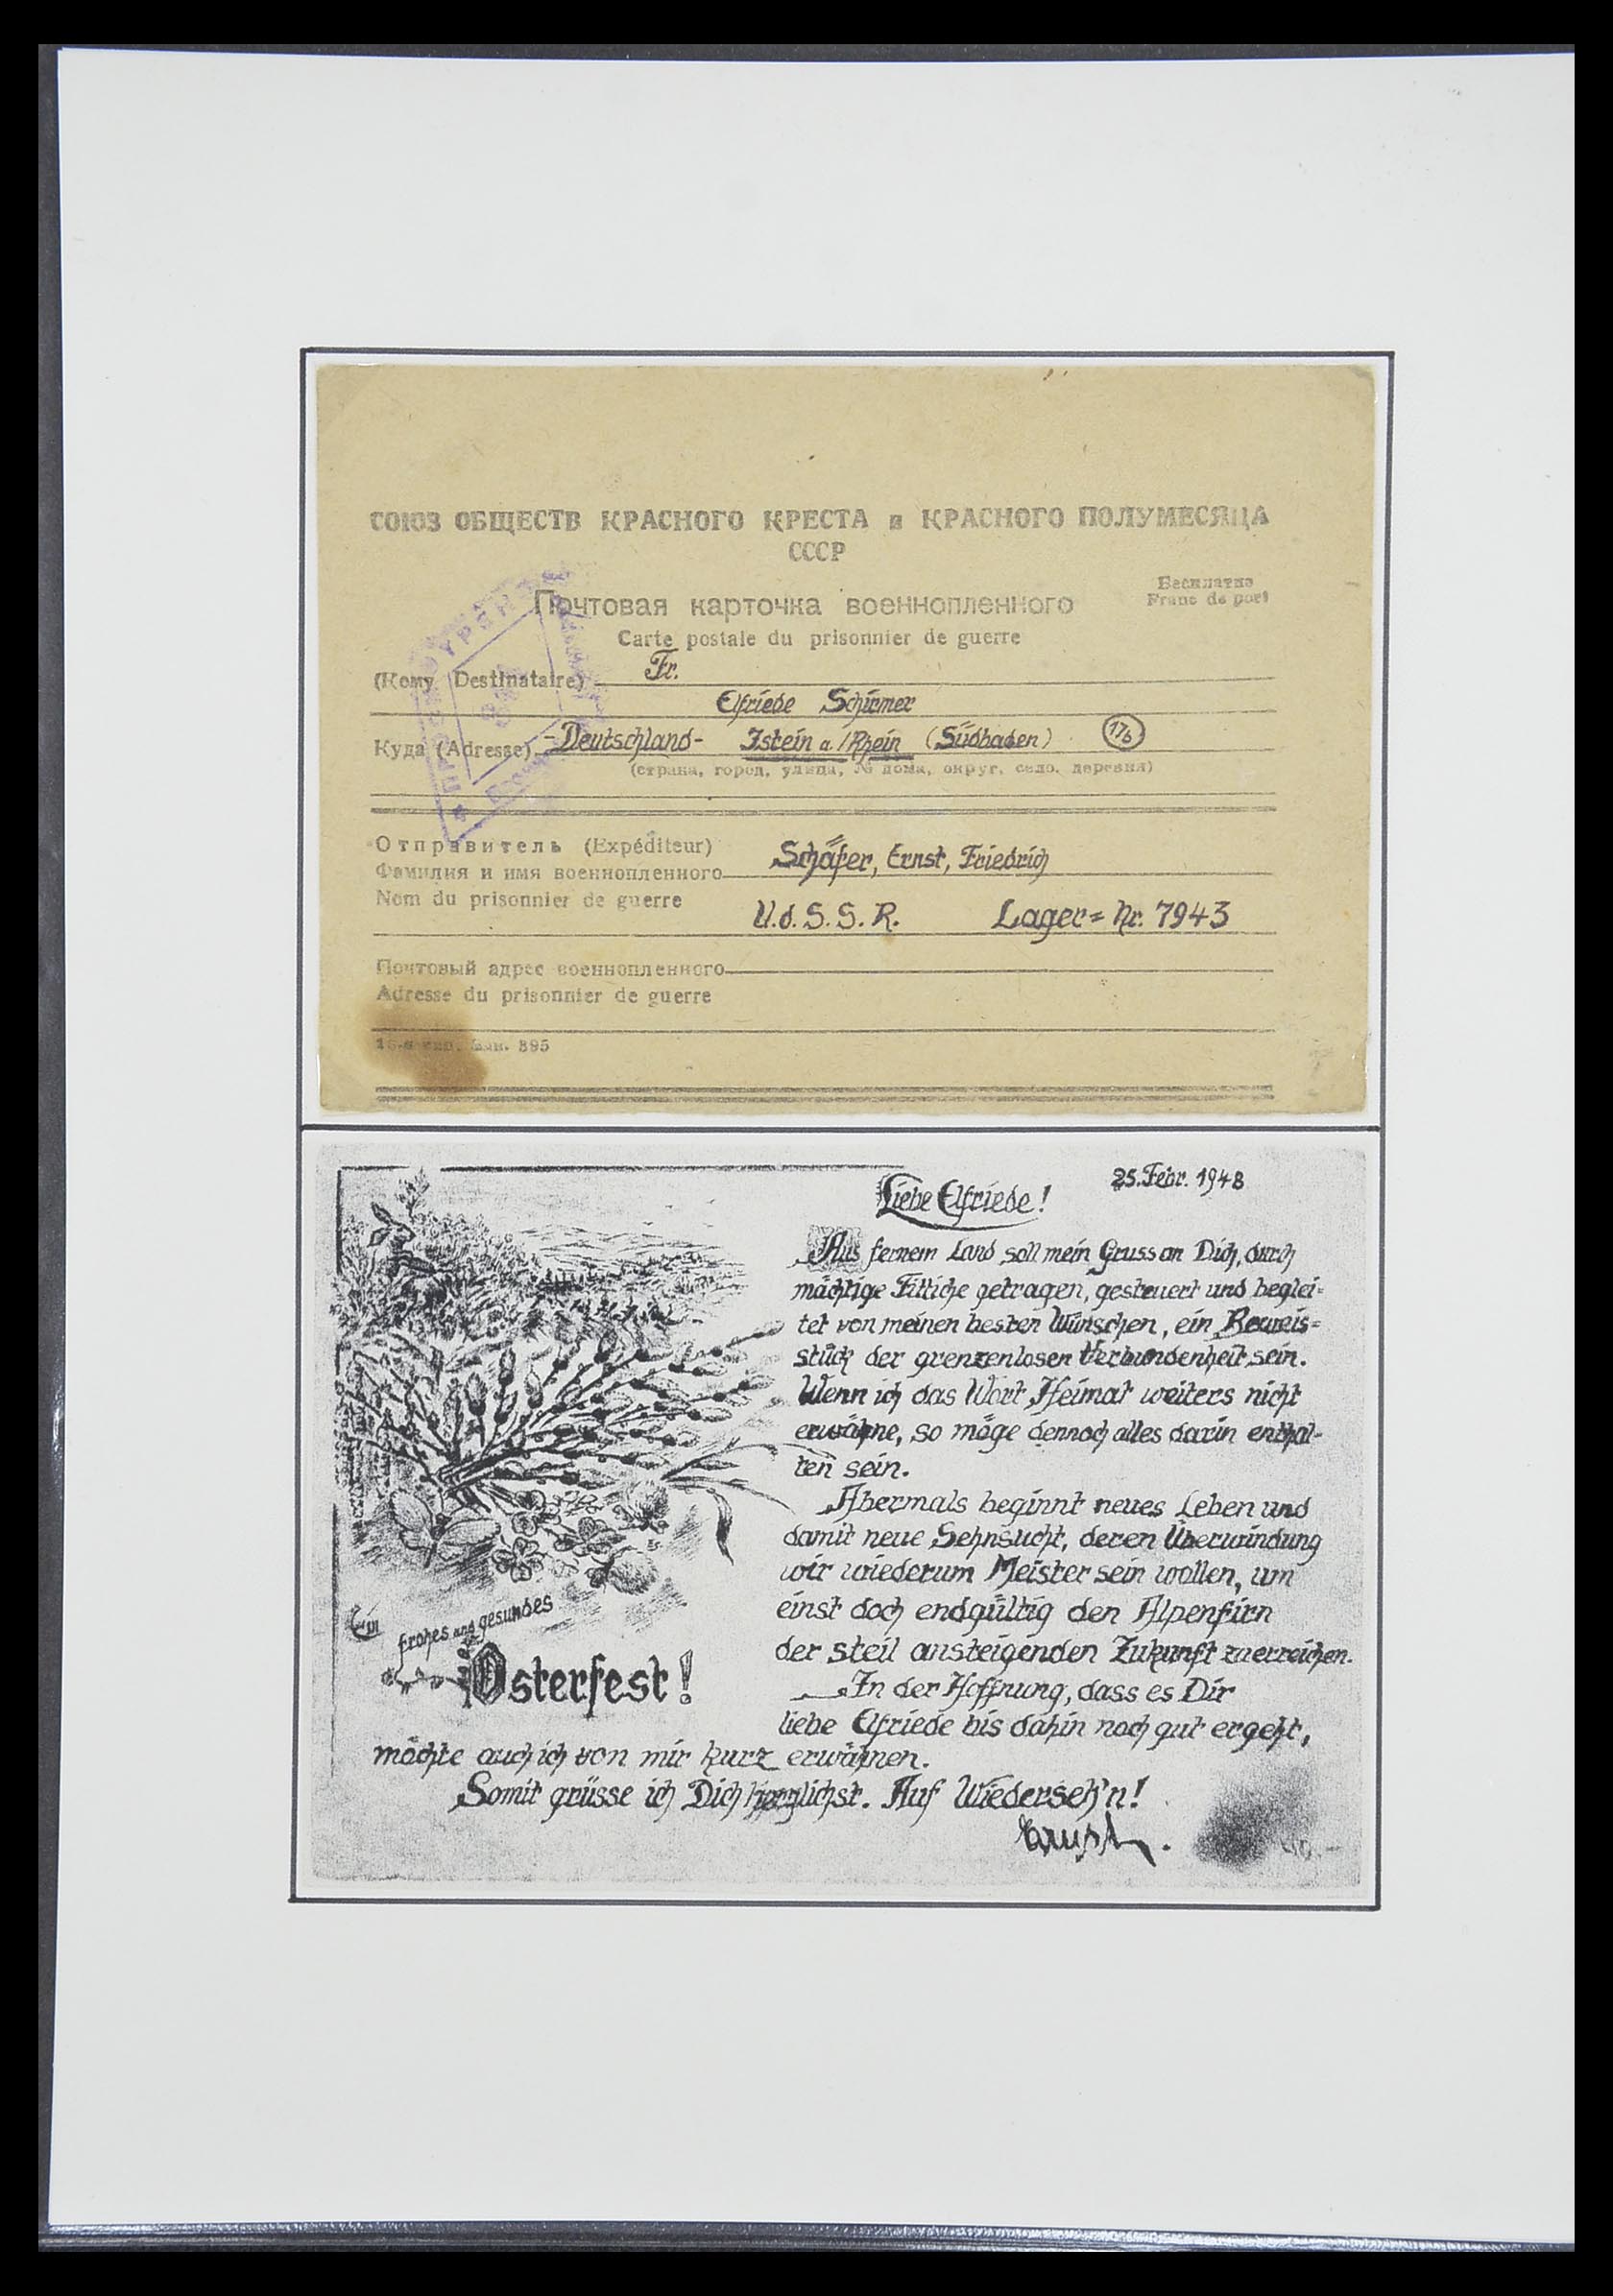 СОЮЗ ОБЩЕСТВ КРАСНОГО КРЕСТА и КРАСНОГО ПОЛУМЕСЯЦА
СССР
Бесплатно
Franc de port
Почтовая карточка военнопленного
Carte postale du prisonnier de guerre
(Кому (Destinataire) Fr.
Elfriede Schirmer
Куда (Adresse) -Deutschland- Istein a./Rhein (Südbaden) 17b
(страна, город, улица, № дома, округ, село, деревня)
Отправитель (Expéditeur)
Фамилия и имя военнопленного Schäfer, Ernst, Friedrich
Nom du prisonnier de guerre
U.d.S.S.R. Lager= Nr. 7943
Почтовый адрес военнопленного
Adresse du prisonnier de guerre
16-я тип. Зак. 395
25. Febr. 1948
Liebe Elfriede!
Aus fernem Land soll mein Gruss an Dich, durch
mächtige Fittiche getragen, gesteuert und beglei=
tet von meinen besten Wünschen, ein Beweis=
stück der grenzenlosen Verbundenheit sein.
Wenn ich das Wort Heimat weiters nicht
erwähne, so möge dennoch alles darin enthal-
ten sein.
Abermals beginnt neues Leben und
damit neue Sehnsucht, deren Überwindung
wir wiederum Meister sein wollen, um
einst doch endgültig den Alpenfirn
der steil ansteigenden Zukunft zu erreichen.
In der Hoffnung, dass es Dir
liebe Elfriede bis dahin noch gut ergeht,
möchte auch ich von mir kurz erwähnen.
Somit grüsse ich Dich herzlichst. Auf Wiederseh'n!
Ernst.
Ein
frohes und gesundes
Osterfest!